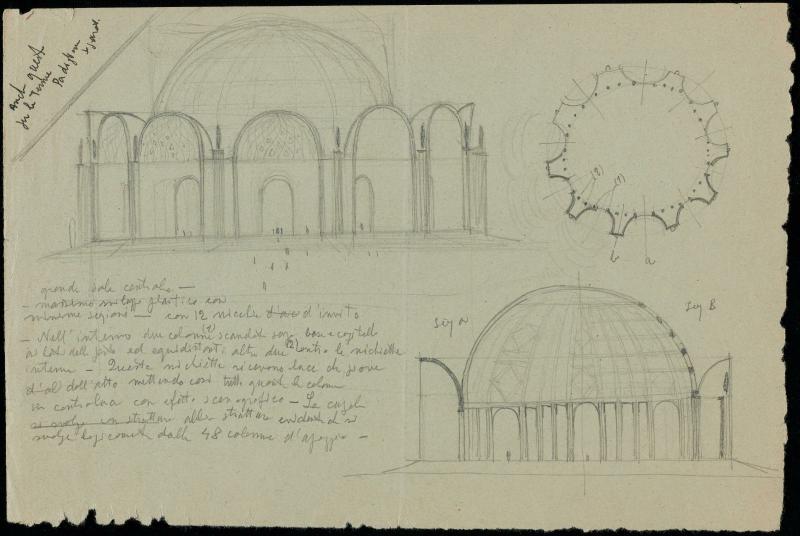 quest
Terme
grande sala centrale —
— massimo sviluppo plastico con
minime sezioni — con 12 nicchie d'arco d'invito
— Nell'interno due colonne (1) scandite senza base e capitello
ai lati dell ed equidistanti altre due (2) entro le nichiette
interne — Queste nichiette ricevono luce che piove
dall'alto mettendo così tutte queste le colonne
in controluce con effetto scenografico — La cupola
si svolge con struttura alla struttura evidente si
svolge logicamente dalle 48 colonne d'appoggio —
(2)
(1)
b
a
Sez A
Sez B